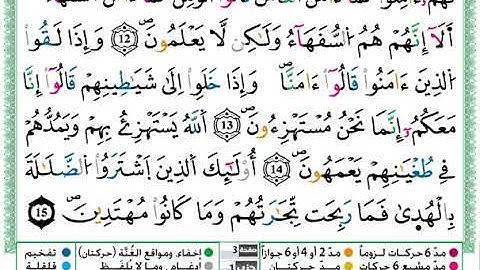 أَلَآ إِنَّهُمْ هُمُ السُّفَهَآءُ وَلَٰكِن لَّا يَعْلَمُونَۖ 12 وَإِذَا لَقُواْ
الَّذِينَ ءَامَنُواْ قَالُوٓاْ ءَامَنَّاۖ وَإِذَا خَلَوِاْ اِلَىٰ شَيَٰطِينِهِمْ قَالُوٓاْ إِنَّا
مَعَكُمُۥٓ إِنَّمَا نَحْنُ مُسْتَهْزِءُونَۖ 13 اَللَّهُ يَسْتَهْزِئُ بِهِمْ وَيَمُدُّهُمْ
فِي طُغْيَٰنِهِمْ يَعْمَهُونَۖ 14 أُوْلَٰٓئِكَ الَّذِينَ اَشْتَرَوُاْ الضَّلَٰلَةَ
بِالْهُدَىٰ فَمَا رَبِحَت تِّجَٰرَتُهُمْ وَمَا كَانُواْ مُهْتَدِينَۖ 15
مدّ 6 حركات لزوماً مدّ 2 أو 4 أو 6 جوازاً 3 إخفاء، ومواقع الغُنَّة (حركتان) تفخيم
مدّ مشبع 6 حركات مدّ حركتان إدغام، وما لا يُلفَظ قلقلة